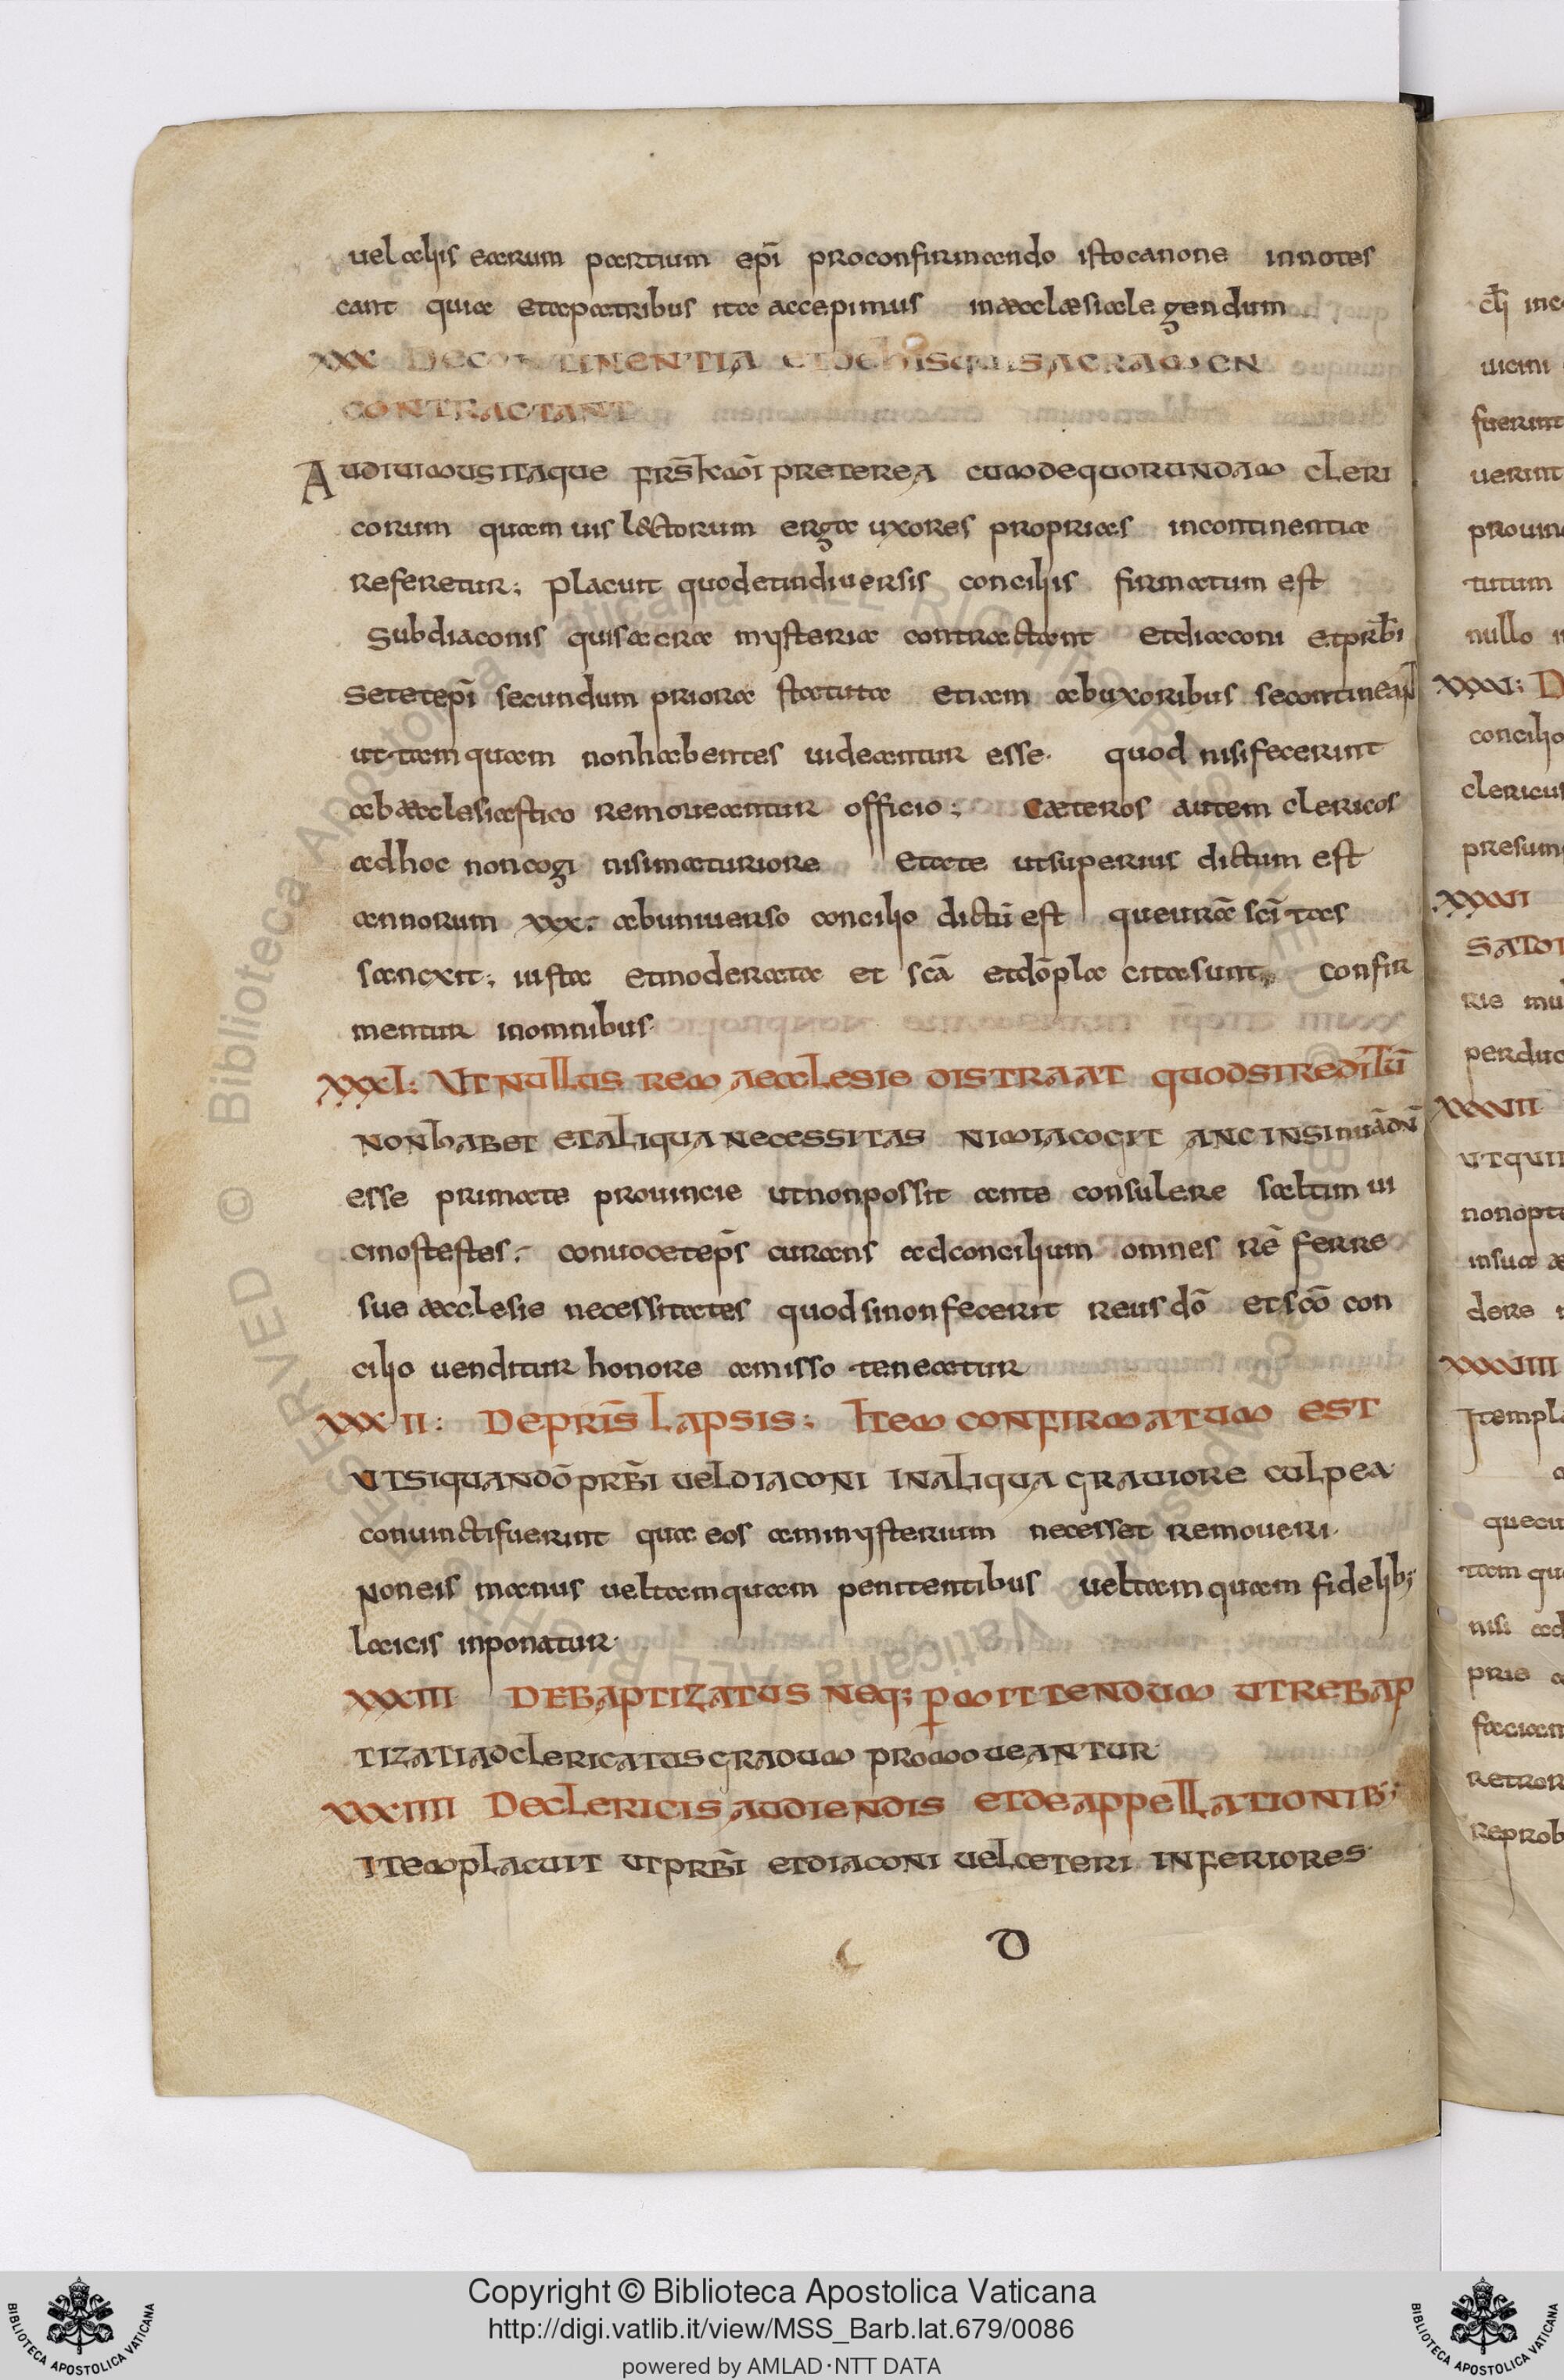 uel aliis earum partium epī proconfirmando istocanone innotes
cant quia etapatribus ita accepimus inaecclæsialegendum
XXX DECONTINENTIA ETDEHIS QUISACRAMEN
CONTRACTANT
AUDIUIMUSITAQUE FRS̄ KMĪ PRETEREA CUMDEQUORUNDAM CLERI
corum quamuis lectorum erga uxores proprias incontinentia
referetur; placuit quodetindiuersis conciliis firmatum est
Subdiaconis quisacra mysteria contractant etdiaconi etprb̄i
setetepī secundum priora statuta etiam abuxoribus secontineant
ut tamquam nonhabentes uideantur esse. quod nisifecerint
abaecclesiastico remoueantur officio; Cæteros autem clericos
adhoc noncogi nisimaturiore etate utsuperius dictum est
annorum xxx; abuniuerso concilio dictū est queurā scī tas
sancxit; iusta etmoderata et scā etdōpla citasunt confir
mentur inomnibus.
XXXI: UTNULLUS REM AECCLESIE DISTRAAT QUODSIREDITŪ
NONHABET ETALIQUANECESSITAS NIMIACOGIT ANC INSINUĀDŪ
esse primate prouincie utnonpossit ante consulere saltim ui
cinostestes; conuocetep̄s curans adconcilium omnes rē ferre
sue aecclesie necessitates quodsinonfecerit reusdō etscō con
cilio uenditur honore amisso teneatur
XXXII: DEPRIS̄ LAPSIS: ITEM CONFIRMATUM EST
UTSIQUANDŌ PRB̄I UELDIACONI INALIQUA GRAUIORE CULPEA
conuinctifuerint qua eos aminysterium necesset remoueri.
Noneis manus ueltamquam penitentibus ueltamquam fidelib;
laicis inponatur.
XXXIII DEBAPTIZATUS NEQ; PMITTENDUM UTREBAP
TIZATIADCLERICATUSGRADUM PROMOUEANTUR.
XXXIIII DECLERICIS AUDIENDIS ETDEAPPELLATIONIB;
ITEMPLACUIT UTPRB̄I ETDIACONI UELCETERI INFERIORES.
D
cłi inc
uicini
fuerint
uerint
prouin
tutum
nullo
XXXI; D
concilio
clericus
presum
XXXII
SATO
rie mu
perduc
XXXIII
UTQUI
nonopt
insua
dere
XXXIIII
Itempl
quecu
tam qu
nisi
prie
facian
retror
reprob
Copyright © Biblioteca Apostolica Vaticana
http://digi.vatlib.it/view/MSS_Barb.lat.679/0086
powered by AMLAD·NTT DATA
BIBLIOTECA APOSTOLICA VATICANA
BIBLIOTECA APOSTOLICA VATICANA